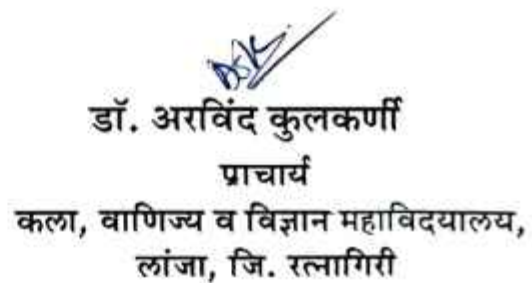 डॉ. अरविंद कुलकर्णी
प्राचार्य
कला, वाणिज्य व विज्ञान महाविदयालय,
लांजा, जि. रत्नागिरी